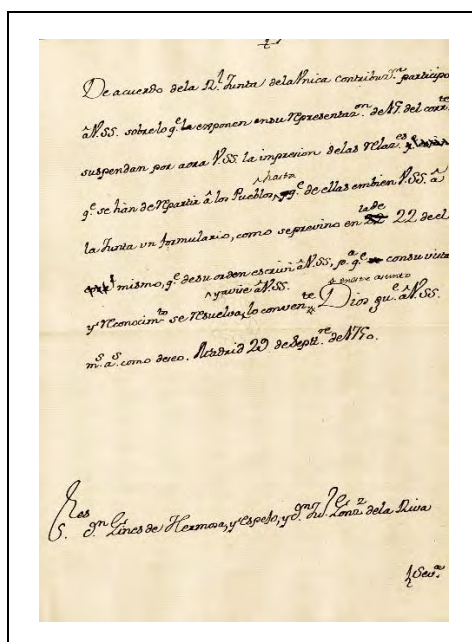 De acuerdo de la Rl. Junta de la Unica contribuzn. participo
â V.SS. sobre lo qe. la exponen en su representazon. de 17 del corrte.
suspendan por aora V.SS. la impresion de las relazes.
qe. se hàn de repartir â los Pueblos, hasta qe. de ellas embien V.SS. â
la Junta vn formulario, como se previno en la de 22 de el
mismo, qe. de su orden escriví â V.SS, pa. qe. con su vista
y reconocimto. y avise â V.SS. se resuelva, lo convente. en este asunto Dios gue. â V.SS.
ms. as. como deseo. Madrid 29 de Septre. de 1750.
Sres. dn. Gines de Hermosa, y Espejo, y dn. Ju. Gonz. de la Riva